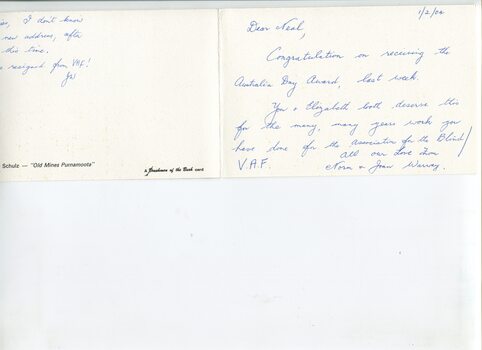 I don't know
new address, after
this time.
resigned from VAF!
JW
Schulz — "Old Mines Purnamoota"
a Brushmen of the Bush card
1/2/00
Dear Neal,
Congratulation on receiving the
Australia Day Award, last week.
You & Elizabeth both deserve this
for the many, many years work you
have done for the Association for the Blind/
V.A.F.
All our Love from
Norm & Joan Warray.